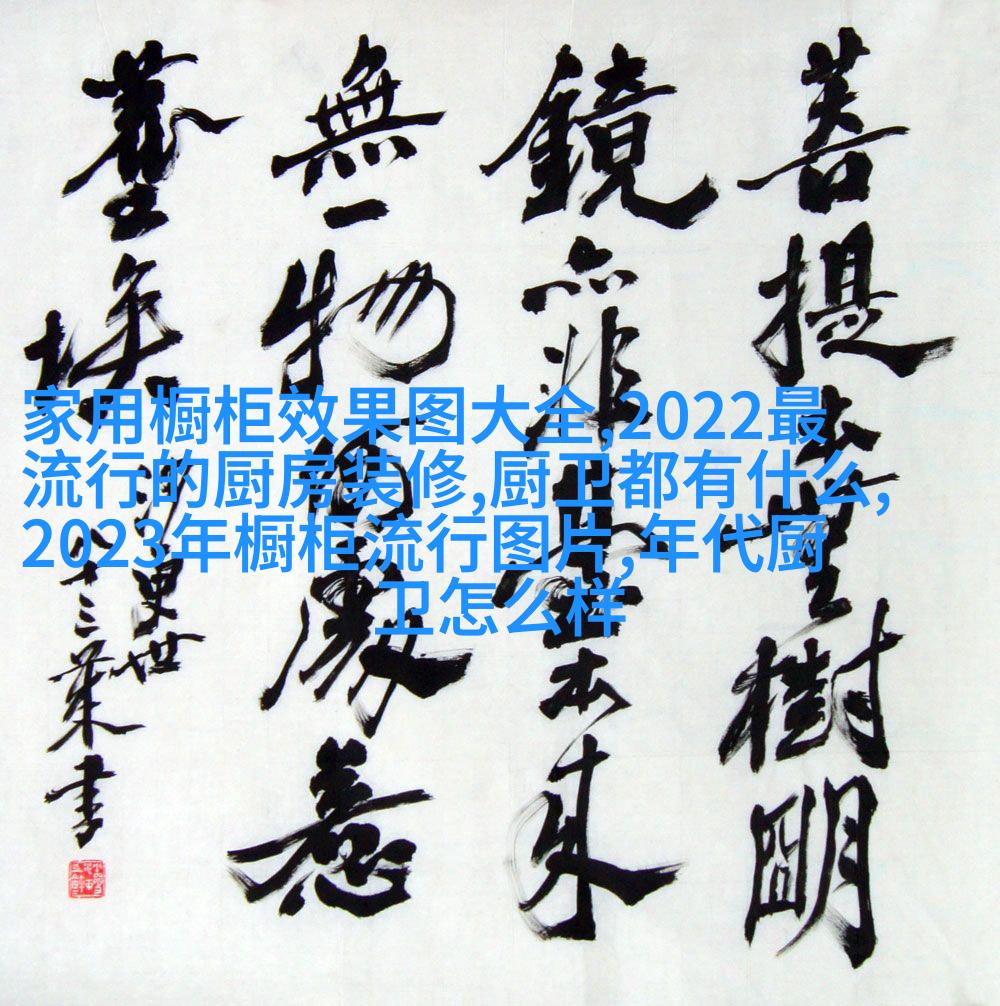 菩提本無樹明
鏡亦非臺本来
無一物何處惹
塵埃
家用橱柜效果图大全,2022最
流行的厨房装修,厨卫都有什么,
2023年橱柜流行图片,年代厨
卫怎么样